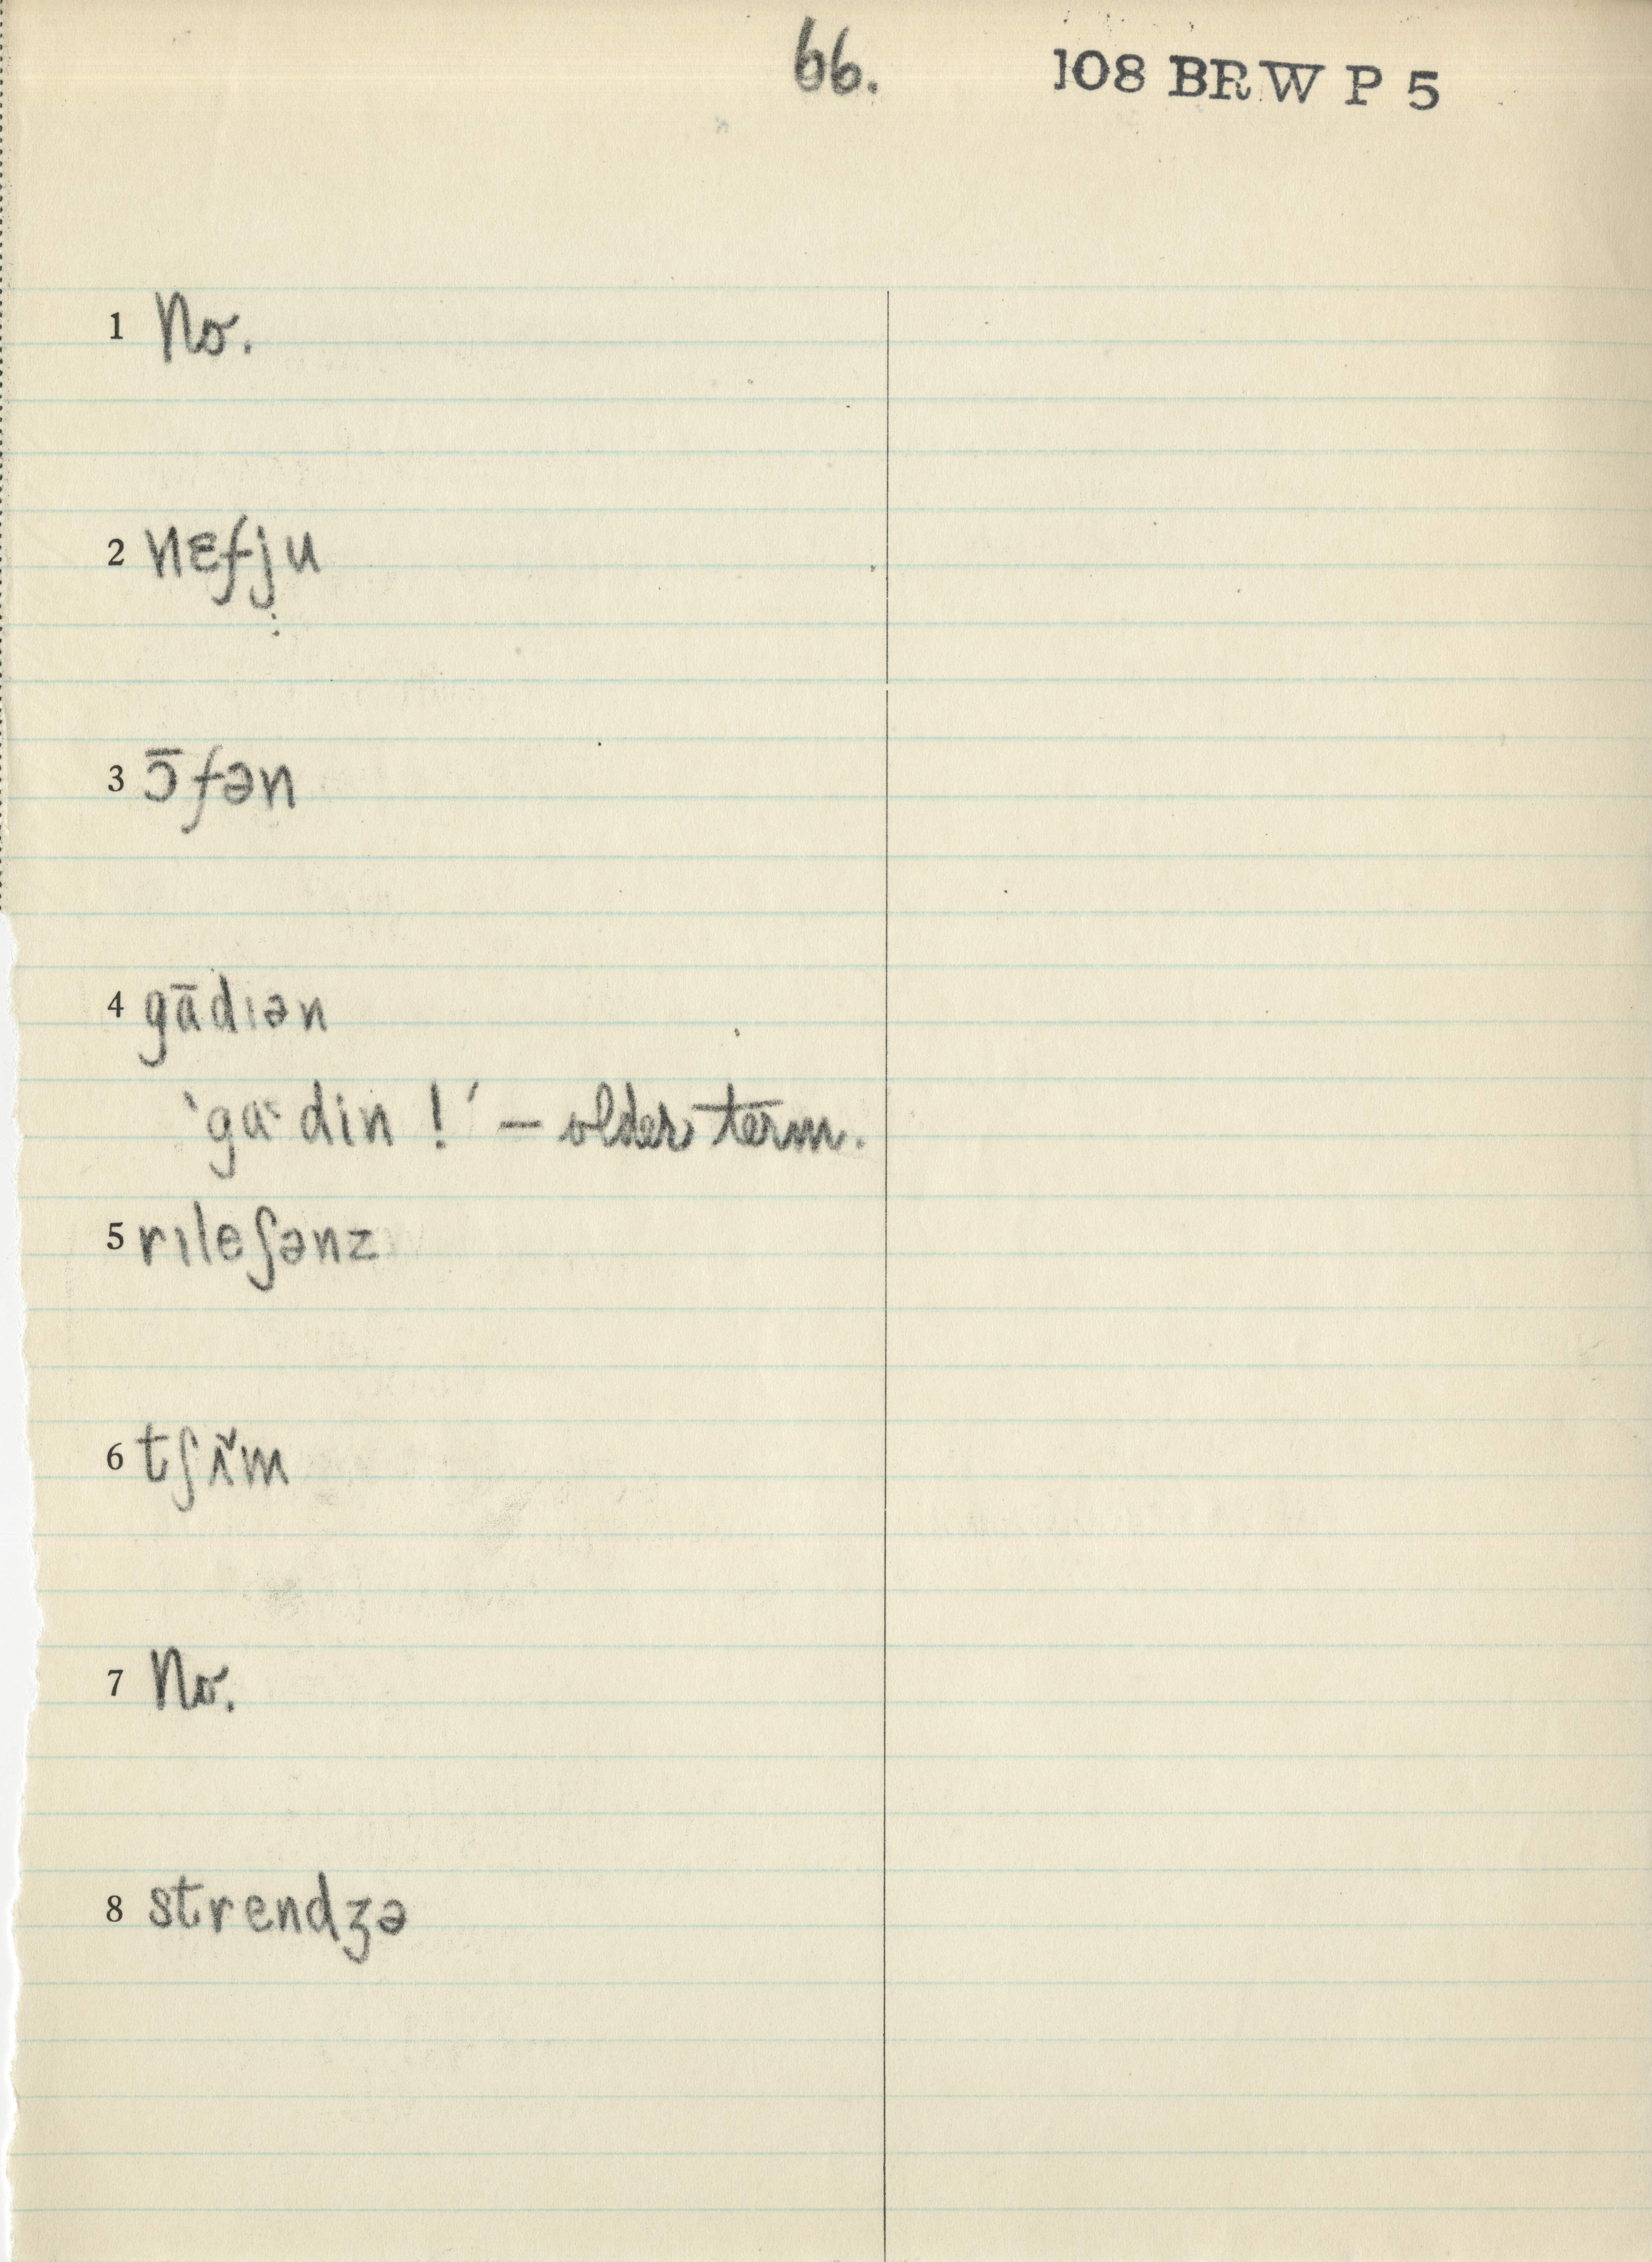 66.
108 BRW P 5
1 No.
2 nɛfju
3 ɔ̄fən
4 gādɪən
‛gaˑdin !’ – older term.
5 rɪleʃənz
6 tʃʌ̌m
7 No.
8 strendʒə